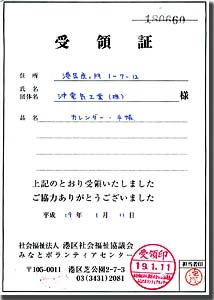 180660
受領証
住所 港区虎ノ門 1-7-12
氏名
団体名 沖電気工業(株) 様
品名 カレンダー・手帳
上記のとおり受領いたしました
ご協力ありがとうございました
平成 19年 1月 11日
社会福祉法人 港区社会福祉協議会
みなとボランティアセンター
〒105-0011 港区芝公園2-7-3
03(3431)2081
受領印
19.1.11
担当者印